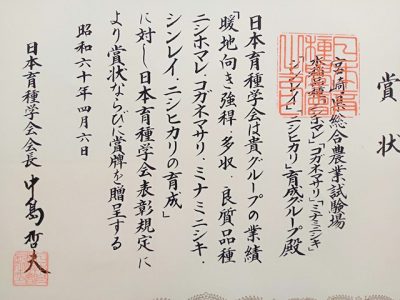 賞状
宮崎県総合農業試験場
水稲品種「ニシホマレ」「コガネマサリ」「ミナミニシキ」
「シンレイ」「ニシヒカリ」育成グループ殿
日本育種学会は貴グループの業績
「暖地向き強稈・多収・良質品種
ニシホマレ・コガネマサリ・ミナミニシキ・
シンレイ・ニシヒカリの育成」
に対し日本育種学会表彰規定に
より賞状ならびに賞牌を贈呈する
昭和六十年四月六日
日本育種学会会長 中島哲夫